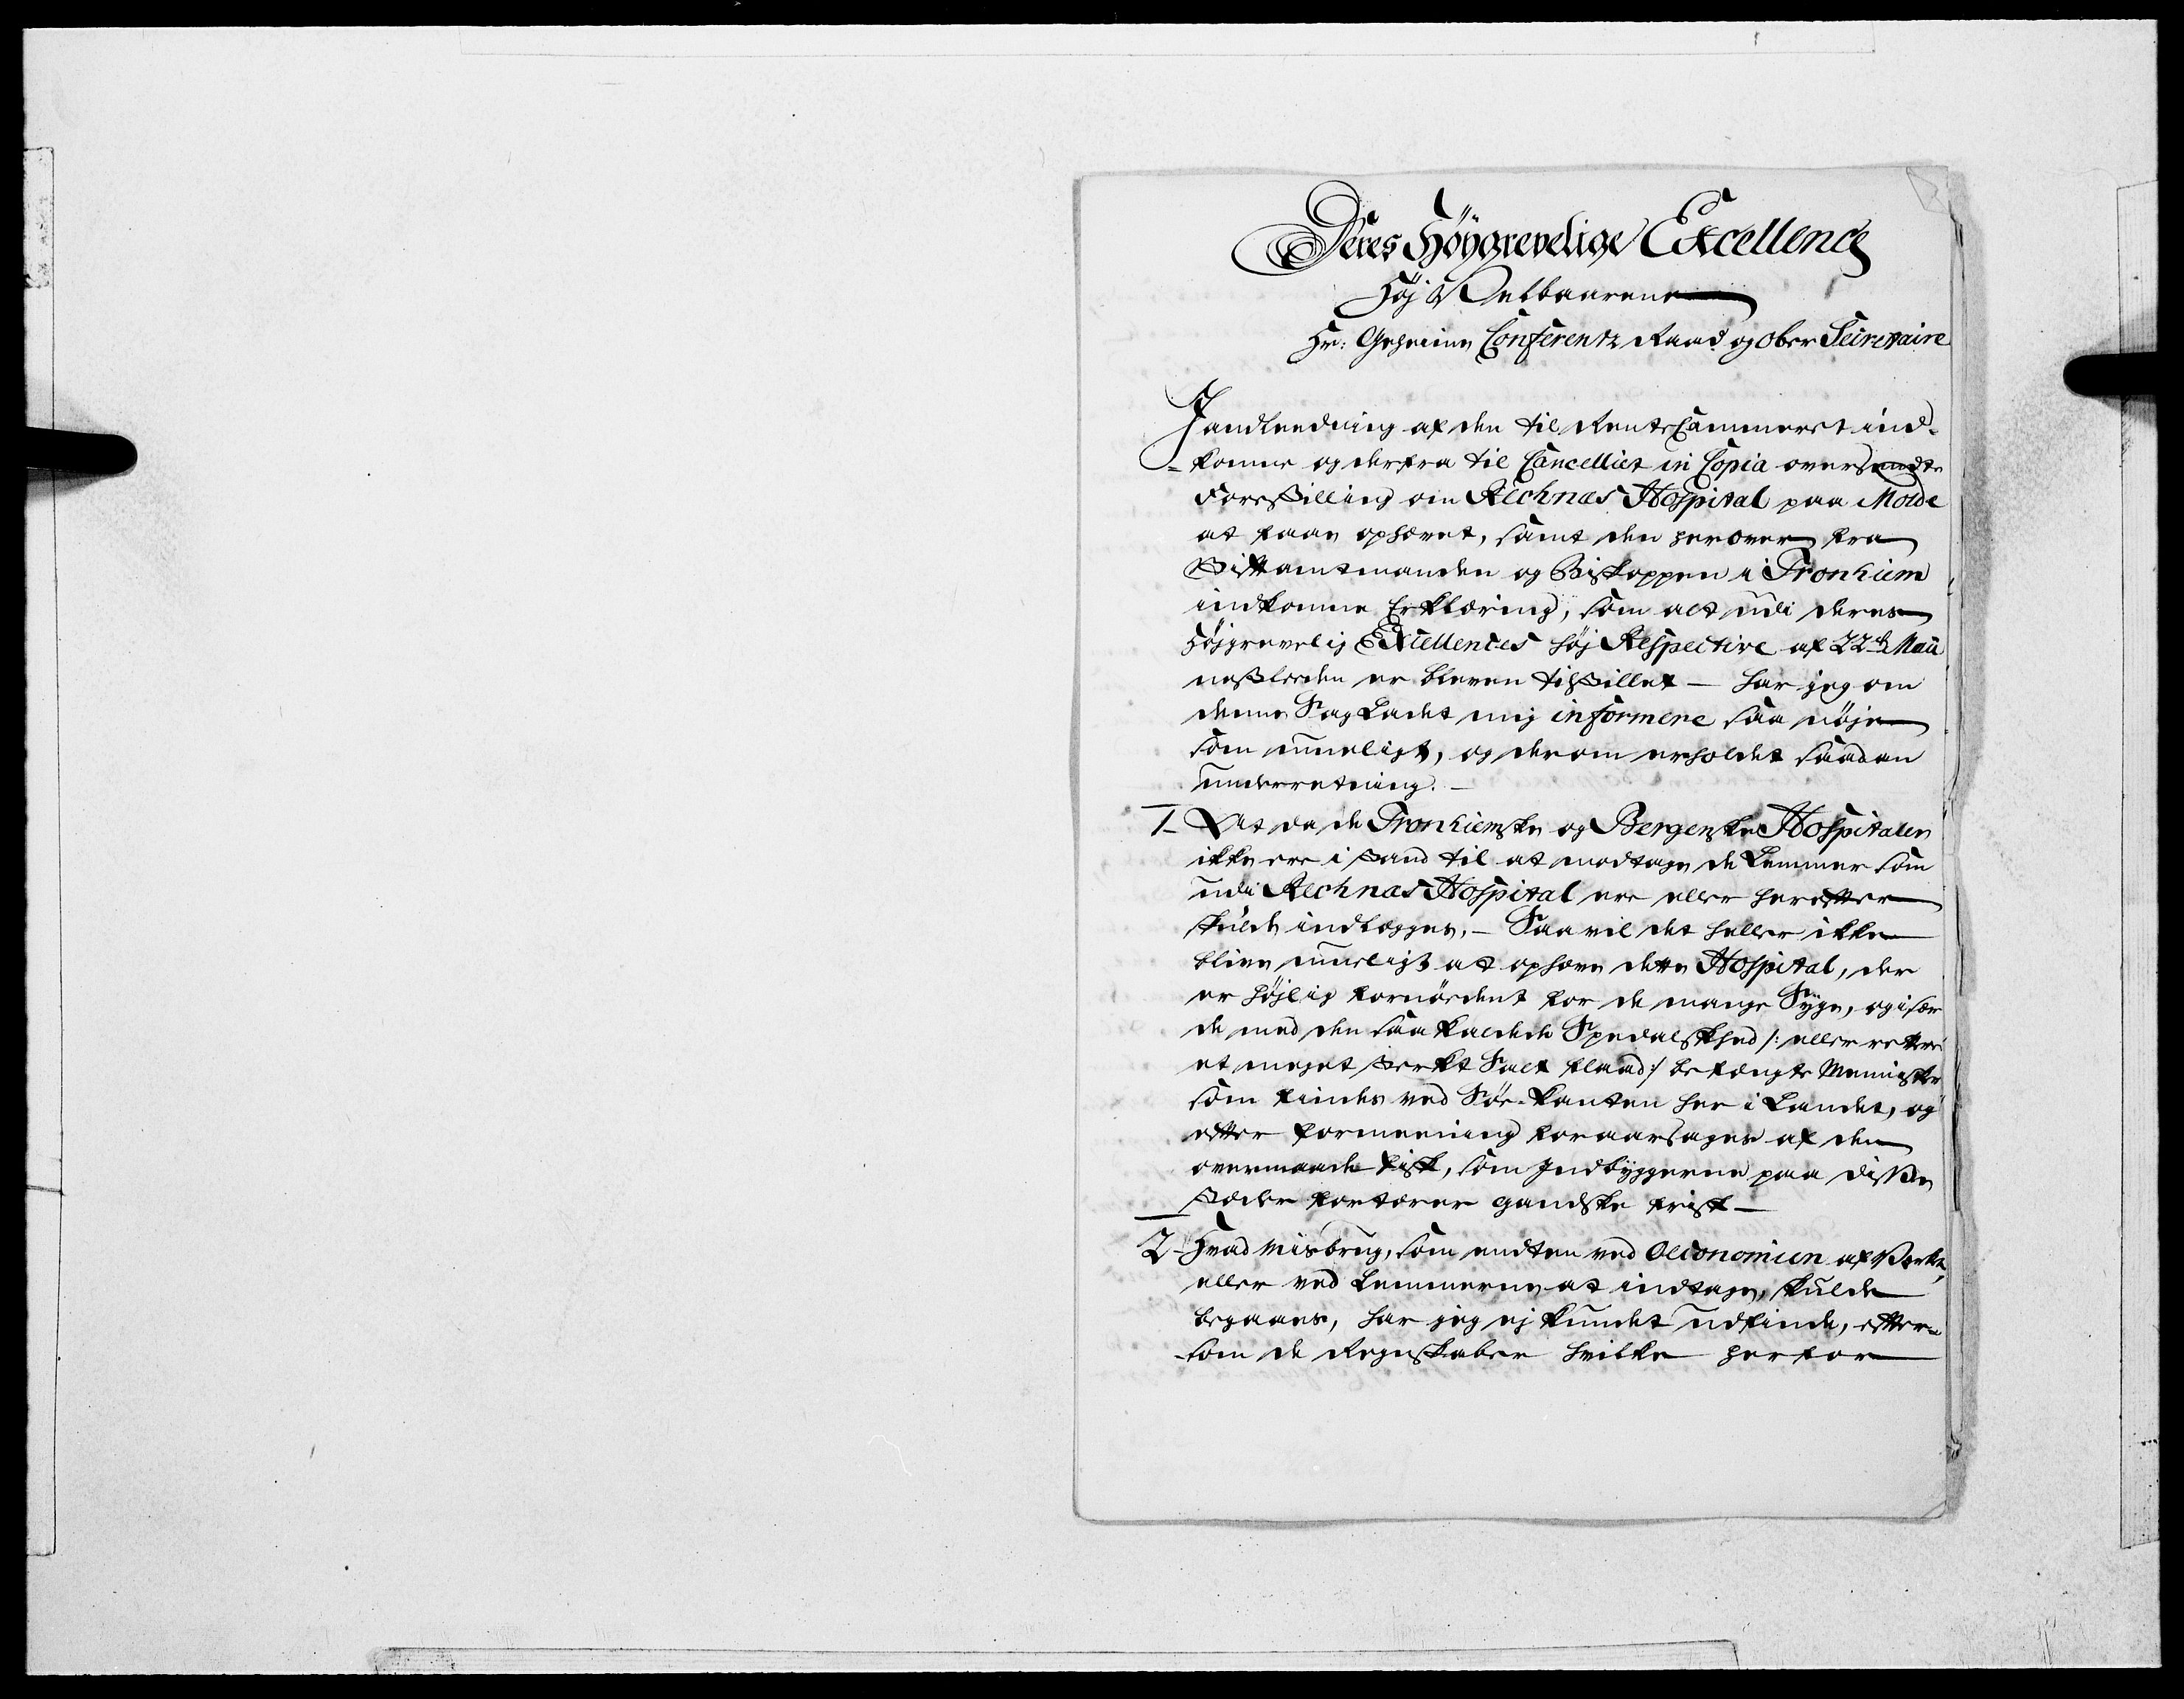 Deres Höygrevelige Excellence
Höj Velbaarene
Hr: Geheime Conferentz Raad og Ober Secretaire
J andledning af den til RenteCammeret ind-
komne og derfra til Cancelliet in Copia oversendte
Forestilling om Rechnæs Hospital paa Molde
at faae ophævet, samt den herover fra
Stiftamtmanden og Biskoppen i Tronhiem
indkomne Erklæring, som alt udi Deres
Höjgrevelig Excellences höj Respective af 22de Maii
nestleden er bleven tilstillet – har jeg om
denne Sag Ladet mig informere saa nöje
som mueligt, og derom erholdet saadan
underretning. –
1– At da de Tronhiemske og Bergenske Hospitaler
ikke ere i stand til at modtage de Lemmer som
udi Rechnæs Hospital ere eller herefter
skulde indlægges, – Saa vil det heller ikke
blive mueligt at ophæve dette Hospital, der
er höjlig fornödent for de mange Syge, og især
de med den saa kaldede Spedalskhed /: eller rettere
et meget sterkt Salt flaad :/ befængte Mennisker
som findes ved Söe-Kanten her i Landet, og
efter formeening foraarsages af den
overmaade Fisk, som Indbyggerne paa disse
stæder fortærer gandske frisk –
2– Hvad misbrug, som endten ved Oeconomien af Verket,
eller ved Lemmerne at indtage, skulde
begaaes, har jeg ej kundet udfinde, efter-
som de Regnskaber hvilke herfor